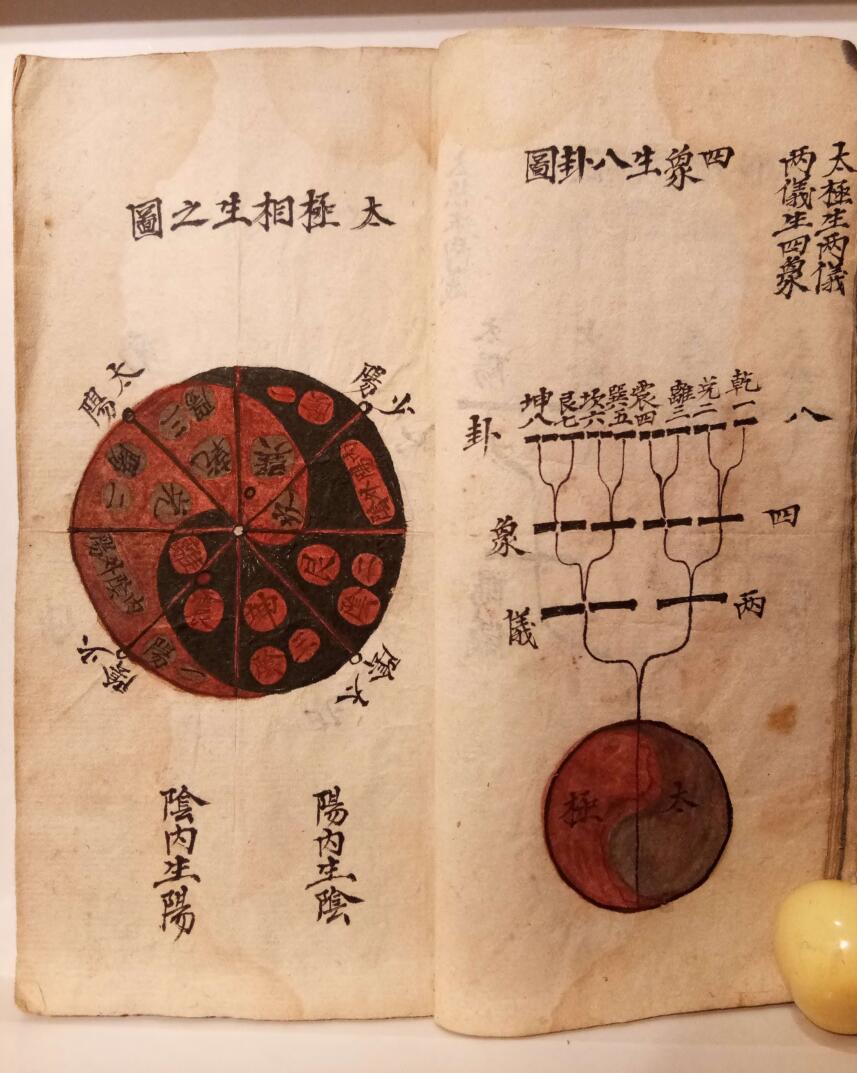 太極生两儀
两儀生四象
四象生八卦圖
八卦
乾一
兌二
離三
震四
巽五
坎六
艮七
坤八
四象
两儀
太極
太極相生之圖
少陽
太陽
陽三
乾
二
兌
坎
艮
二
坤
陽一
少陰
太陰
陽内生陰
陰内生陽